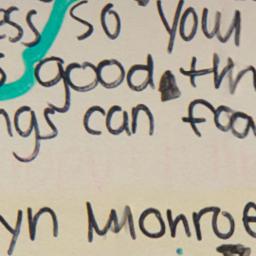 ess so your
s good.th
ngs can foa
yn Monroe